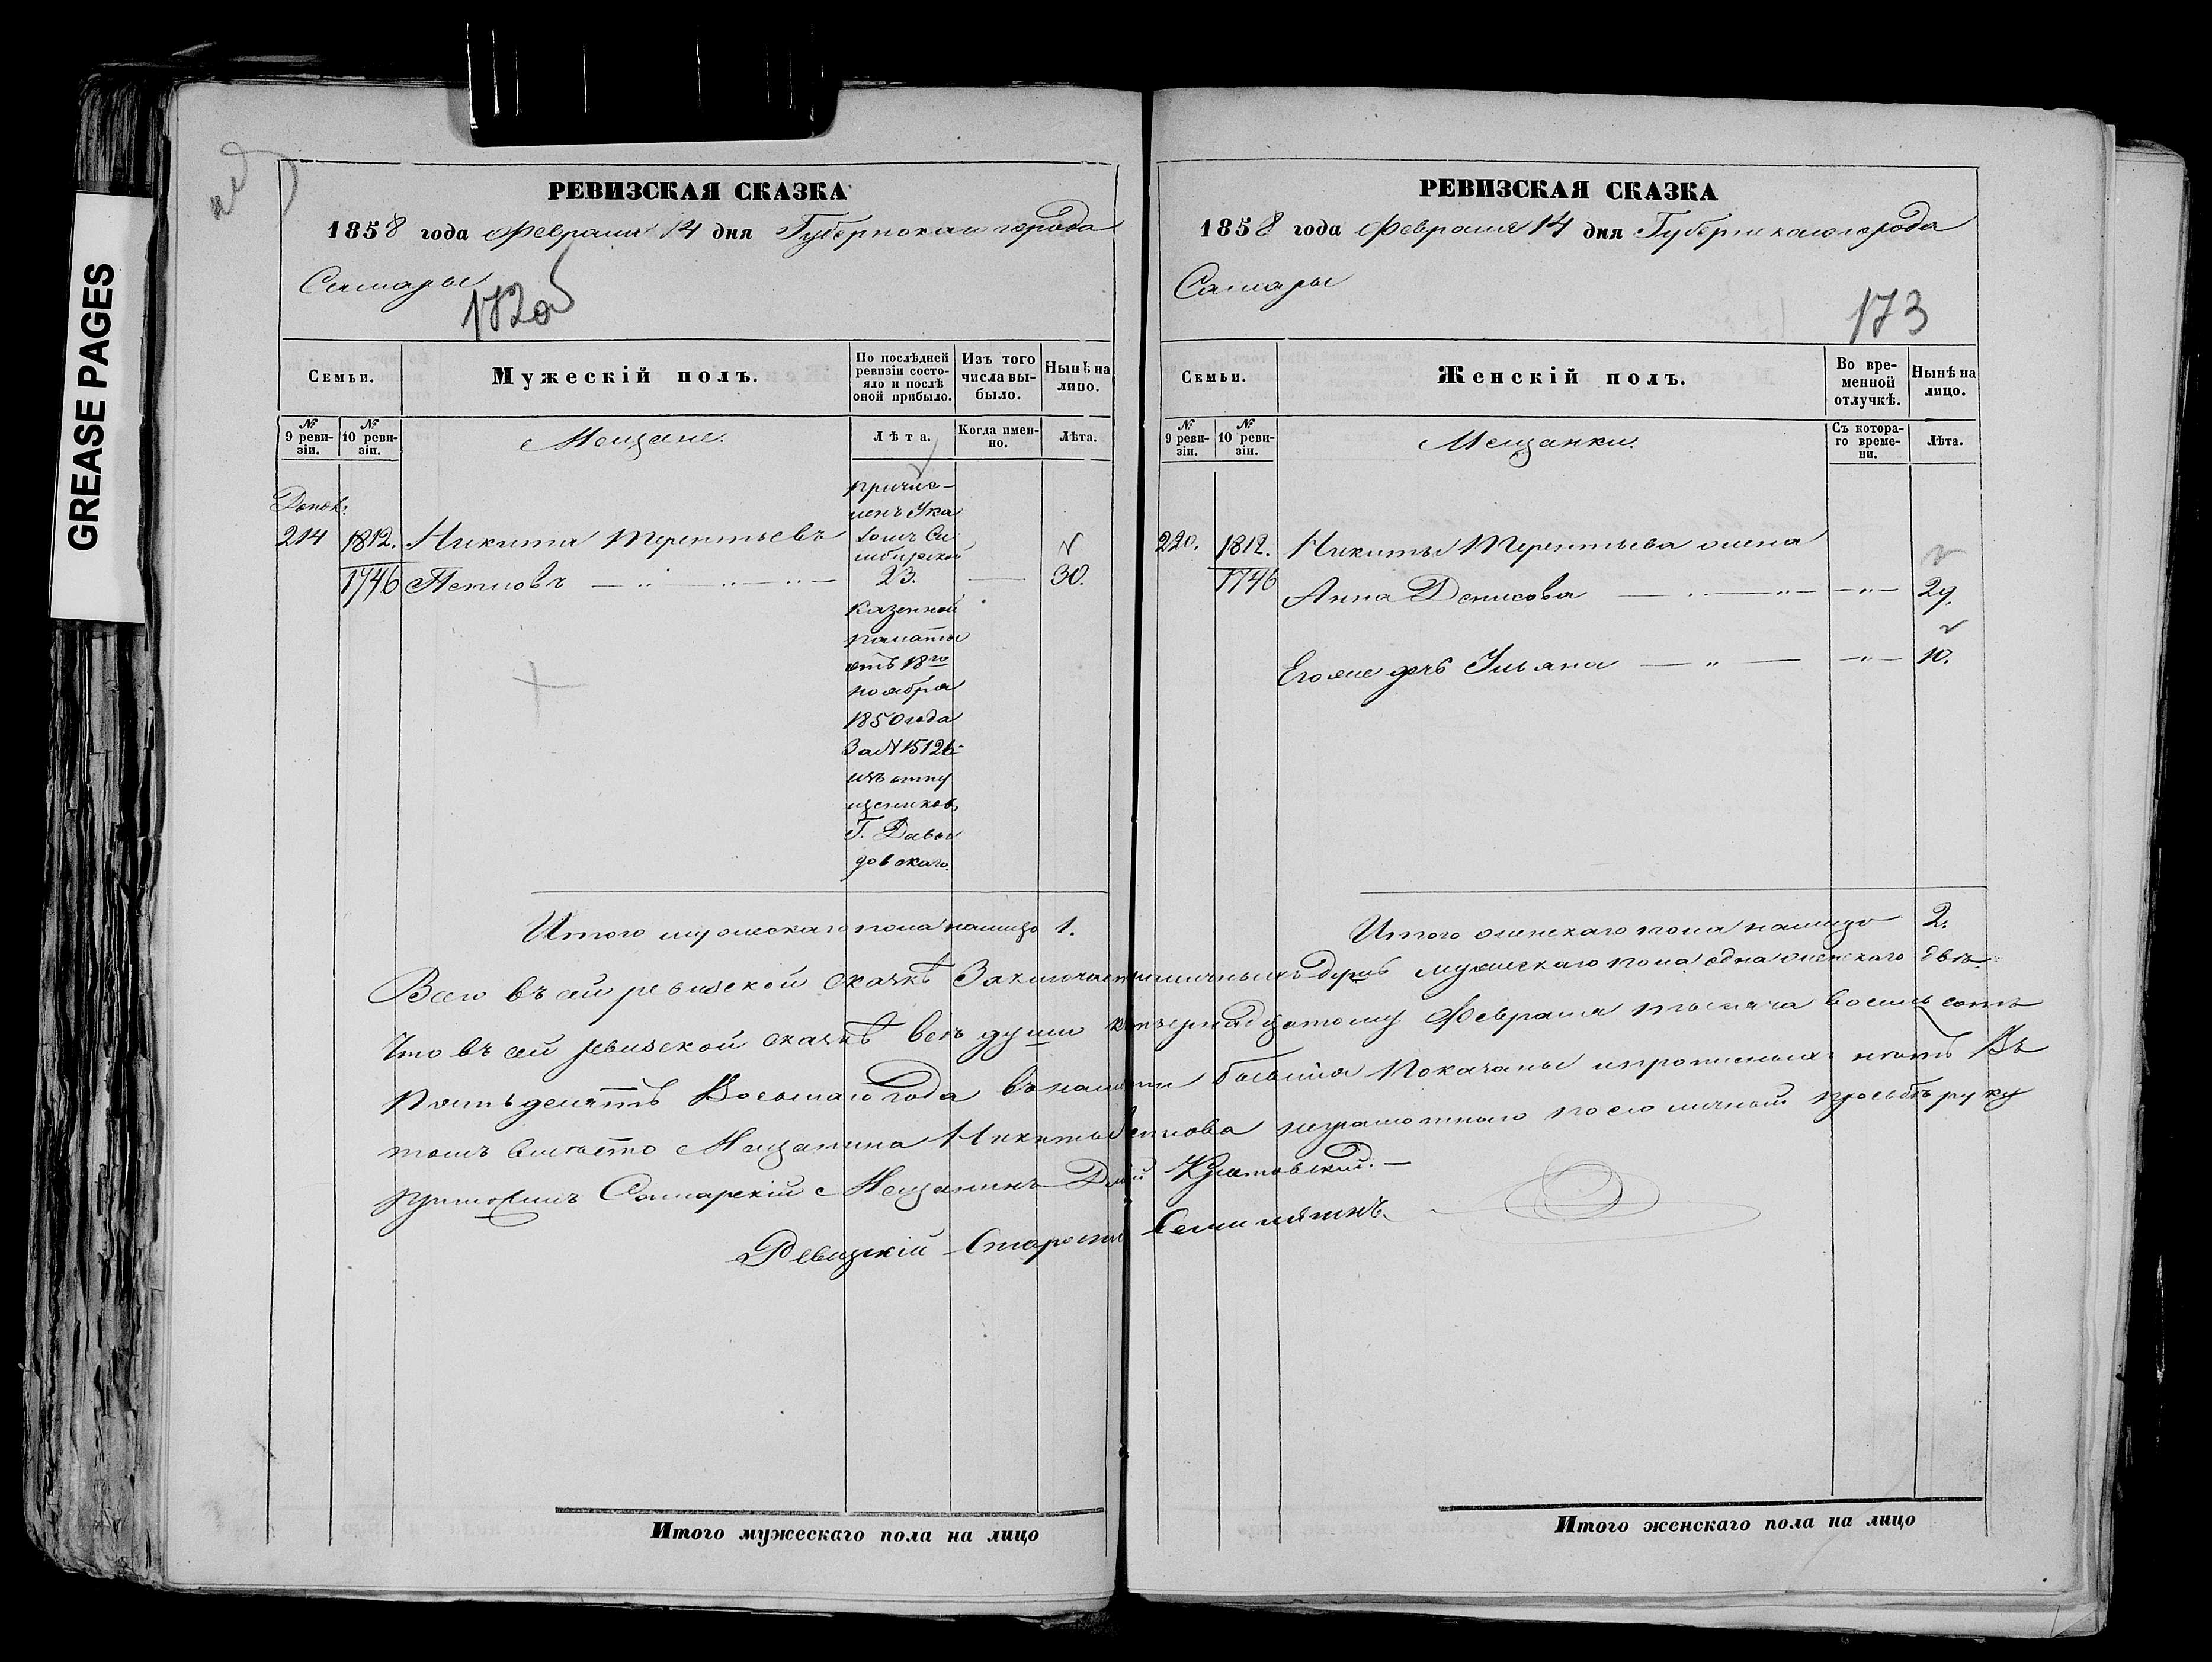 GREASE PAGES
РЕВИЗСКАЯ СКАЗКА
1858 года Февраля 14 дня Губернскаго города
Самары
172об
Семьи.
Мужескій полъ.
По послѣдней ревизіи состояло и послѣ оной прибыло.
Изъ того числа выбыло.
Нынѣ на лицо.
№ 9 ревизіи.
№ 10 ревизіи.
Мещане.
Лѣта.
Когда именно.
Лѣта.
Допол:
214 1812. Никита Терентьевъ
1746
23. 30.
причис-
ленъ Ука
зомъ Си
мбирской
казенной
палаты
отъ 18го
ноября
1850 года
За № 15126
изъ отпу
щениковъ
Г. Давы
довскаго
Итого мужескаго пола налицо 1.
РЕВИЗСКАЯ СКАЗКА
1858 года Февраля 14 дня Губернскаго города
Самары
173
Семьи.
Женскій полъ.
Во временной отлучкѣ.
Нынѣ на лицо.
№ 9 ревизіи.
№ 10 ревизіи.
Мещанки.
Съ котораго времени.
Лѣта.
220. 1812. Никиты Терентьева жена
1746 Анна Денисова 29.
Его же дочь Ульяна 10.
Итого женскаго пола налицо 2.
Всего въ сей ревизской сказкѣ Заключается наличныхъ душъ мужескаго пола одна женскаго двѣ.
Что въ сей ревизской сказкѣ всѣ души къ четырнадцатому Февраля тысяча восемь сотъ
Пятьдесятъ Восьмаго года въ наличіи бывшія Показаны и прописныхъ нѣтъ Въ
томъ вмѣсто Мещанина Никиты неграмотнаго по его личной просьбѣ руку
приложилъ Самарскій Мещанинъ
Ревизскій Староста
Итого мужескаго пола на лицо
Итого женскаго пола на лицо